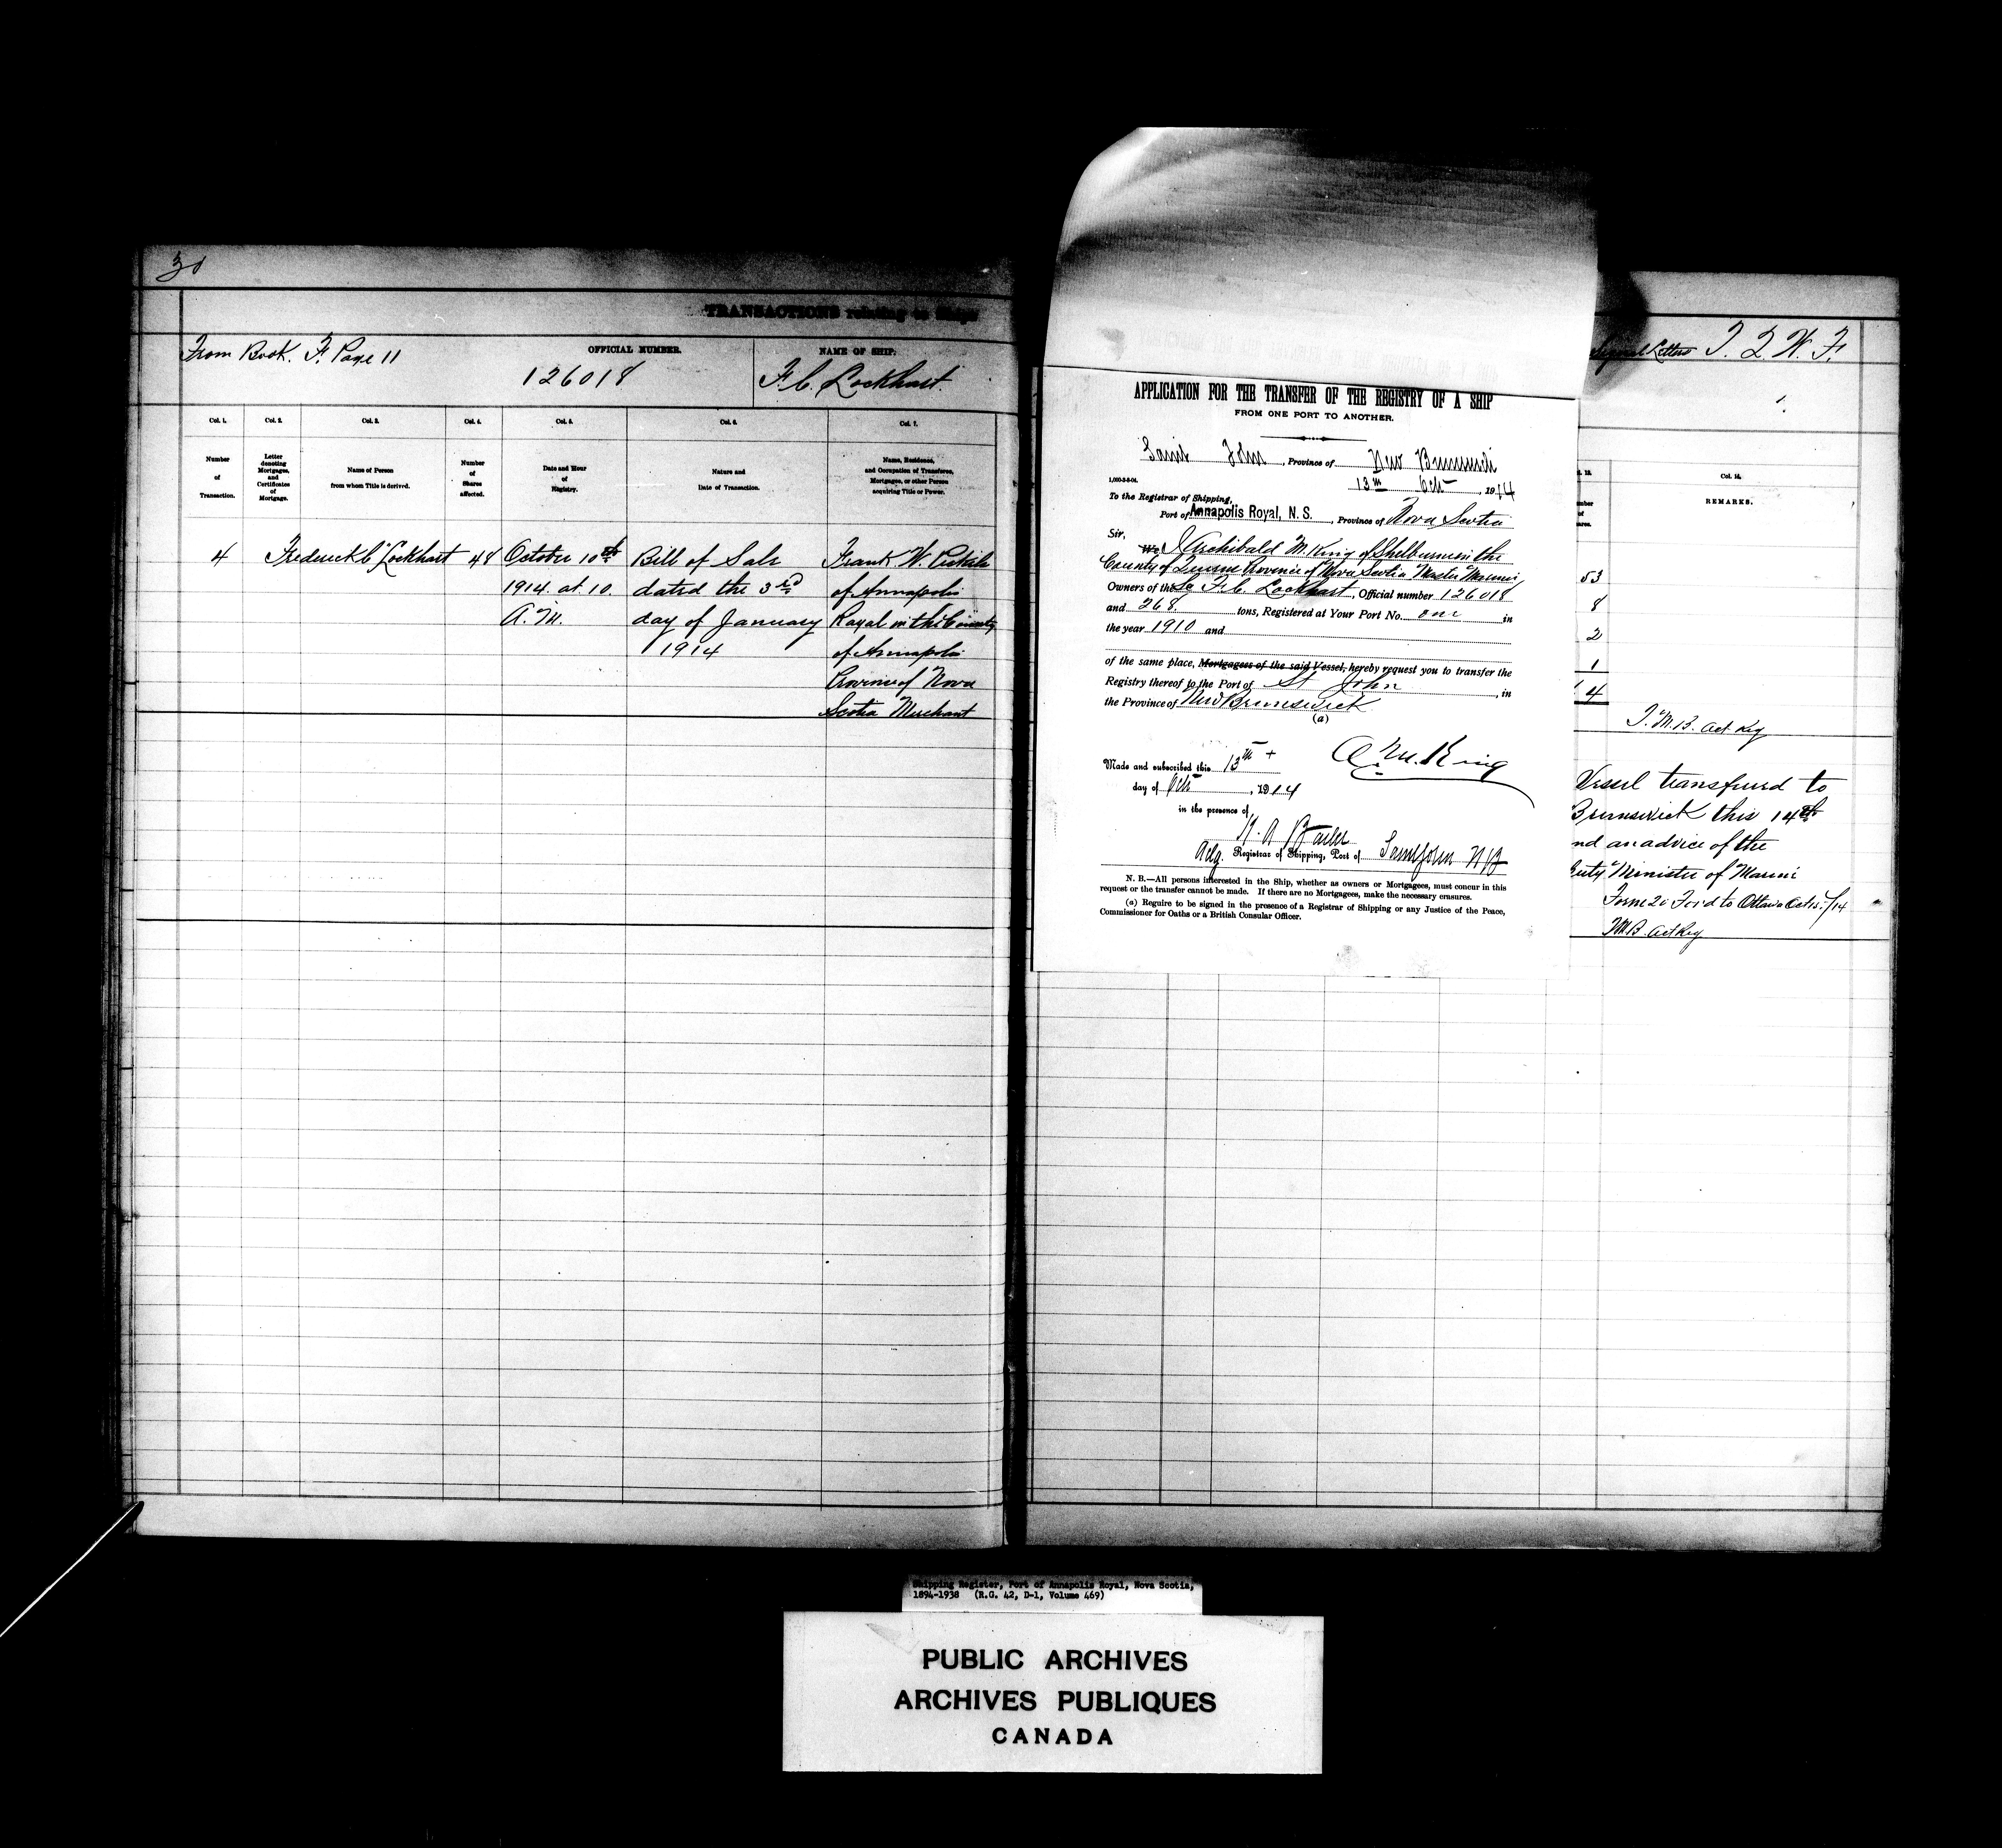 30
TRANSACTIONS relating to Ships
From Book. F. Page 11
OFFICIAL NUMBER.
126018
NAME OF SHIP.
F. C. Lockhart.
Col. 1.
Col. 2.
Col. 3.
Col. 4.
Col. 5.
Col. 6.
Col. 7.
Number
of
Transaction.
Letter
denoting
Mortgages,
and
Certificates
of
Mortgage.
Name of Person
from whom Title is derived.
Number
of
Shares
affected.
Date and Hour
of
Registry.
Nature and
Date of Transaction.
Name, Residence,
and Occupation of Transferee,
Mortgagee, or other Person
acquiring Title or Power.
4 Frederick C Lockhart 48 October 10th Bill of Sale Frank W. Pickels
1914. at 10. dated the 3rd of Annapolis
A.M. day of January Royal in the County
1914 of Annapolis
Province of Nova
Scotia Merchant
APPLICATION FOR THE TRANSFER OF THE REGISTRY OF A SHIP
FROM ONE PORT TO ANOTHER.
Saint John, Province of New Brunswick
13th Oct, 1914
1,000-3-8-04.
To the Registrar of Shipping,
Port of Annapolis Royal, N. S., Province of Nova Scotia
Sir,
We, I Archibald M. King of Shelburne in the
County of Queens Province of Nova Scotia Master Mariner
Owners of the Sc F. C. Lockhart, Official number 126018
and 268 tons, Registered at Your Port No. one in
the year 1910 and
of the same place, Mortgagees of the said Vessel, hereby request you to transfer the
Registry thereof to the Port of St John, in
the Province of New Brunswick
(a)
A. M. King
Made and subscribed this 13th
day of Oct, 1914
in the presence of
Actg. Registrar of Shipping, Port of Saint John N B
N. B.—All persons interested in the Ship, whether as owners or Mortgagees, must concur in this
request or the transfer cannot be made. If there are no Mortgagees, make the necessary erasures.
(a) Require to be signed in the presence of a Registrar of Shipping or any Justice of the Peace,
Commissioner for Oaths or a British Consular Officer.
Signal Letters T. Q. W. F.
Col. 14.
REMARKS.
53
8
2
1
4
T. M. B. Act Reg
Vessel transferred to
Brunswick this 14th
nd an advice of the
puty Minister of Marine
Form 20 For'd to Ottawa Oct 15/14
T M B. Act Reg
Shipping Register, Port of Annapolis Royal, Nova Scotia,
1894-1938 (R.G. 42, D-1, Volume 469)
PUBLIC ARCHIVES
ARCHIVES PUBLIQUES
CANADA